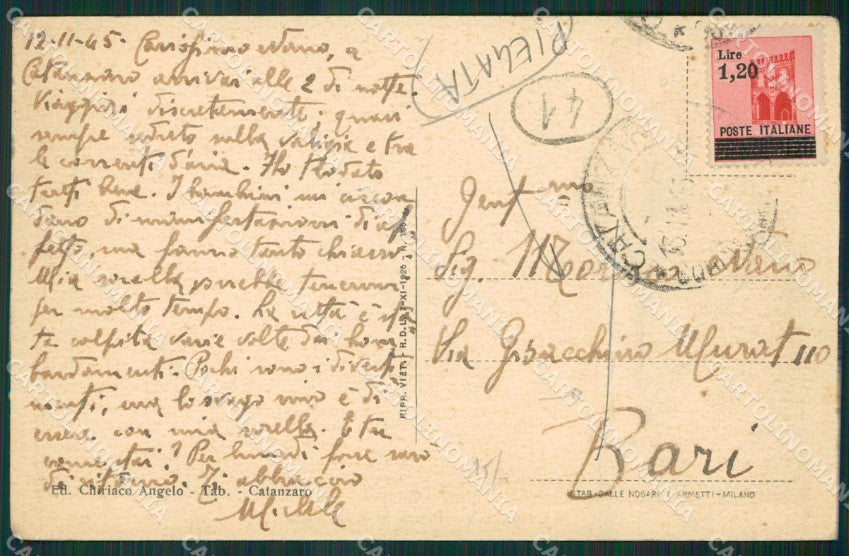 12-11-45- Carissimo Nano, a
Catanzaro arrivai alle 2 di notte.
Viaggiai discretamente, quasi
sempre seduto sulla valigia e tra
le correnti d'aria. Ho trovato
tutti bene. I bambini mi circon
dano di manifestazioni di af
fetto, ma fanno tanto chiasso
Mia sorella vorrebbe tenermi
per molto tempo. La città è sta
ta colpita varie volte dai bom
bardamenti. Pochi sono i diverti
menti, ma lo svago mio è di
essere con mia sorella. E tu
come stai? Per lunedì forse sarò
di ritorno. Ti abbraccio
Michele
Ed. Chiriaco Angelo - Tab. - Catanzaro
RIPR. VIET. - R. D. L.
PIEGATA
41
Lire
1,20
POSTE ITALIANE
CATANZARO
Gent.mo
Sig.
Via Gioacchino Murat 110
Bari
STAB. DALLE NOGARE E ARMETTI - MILANO
CARTOLINOMANIA